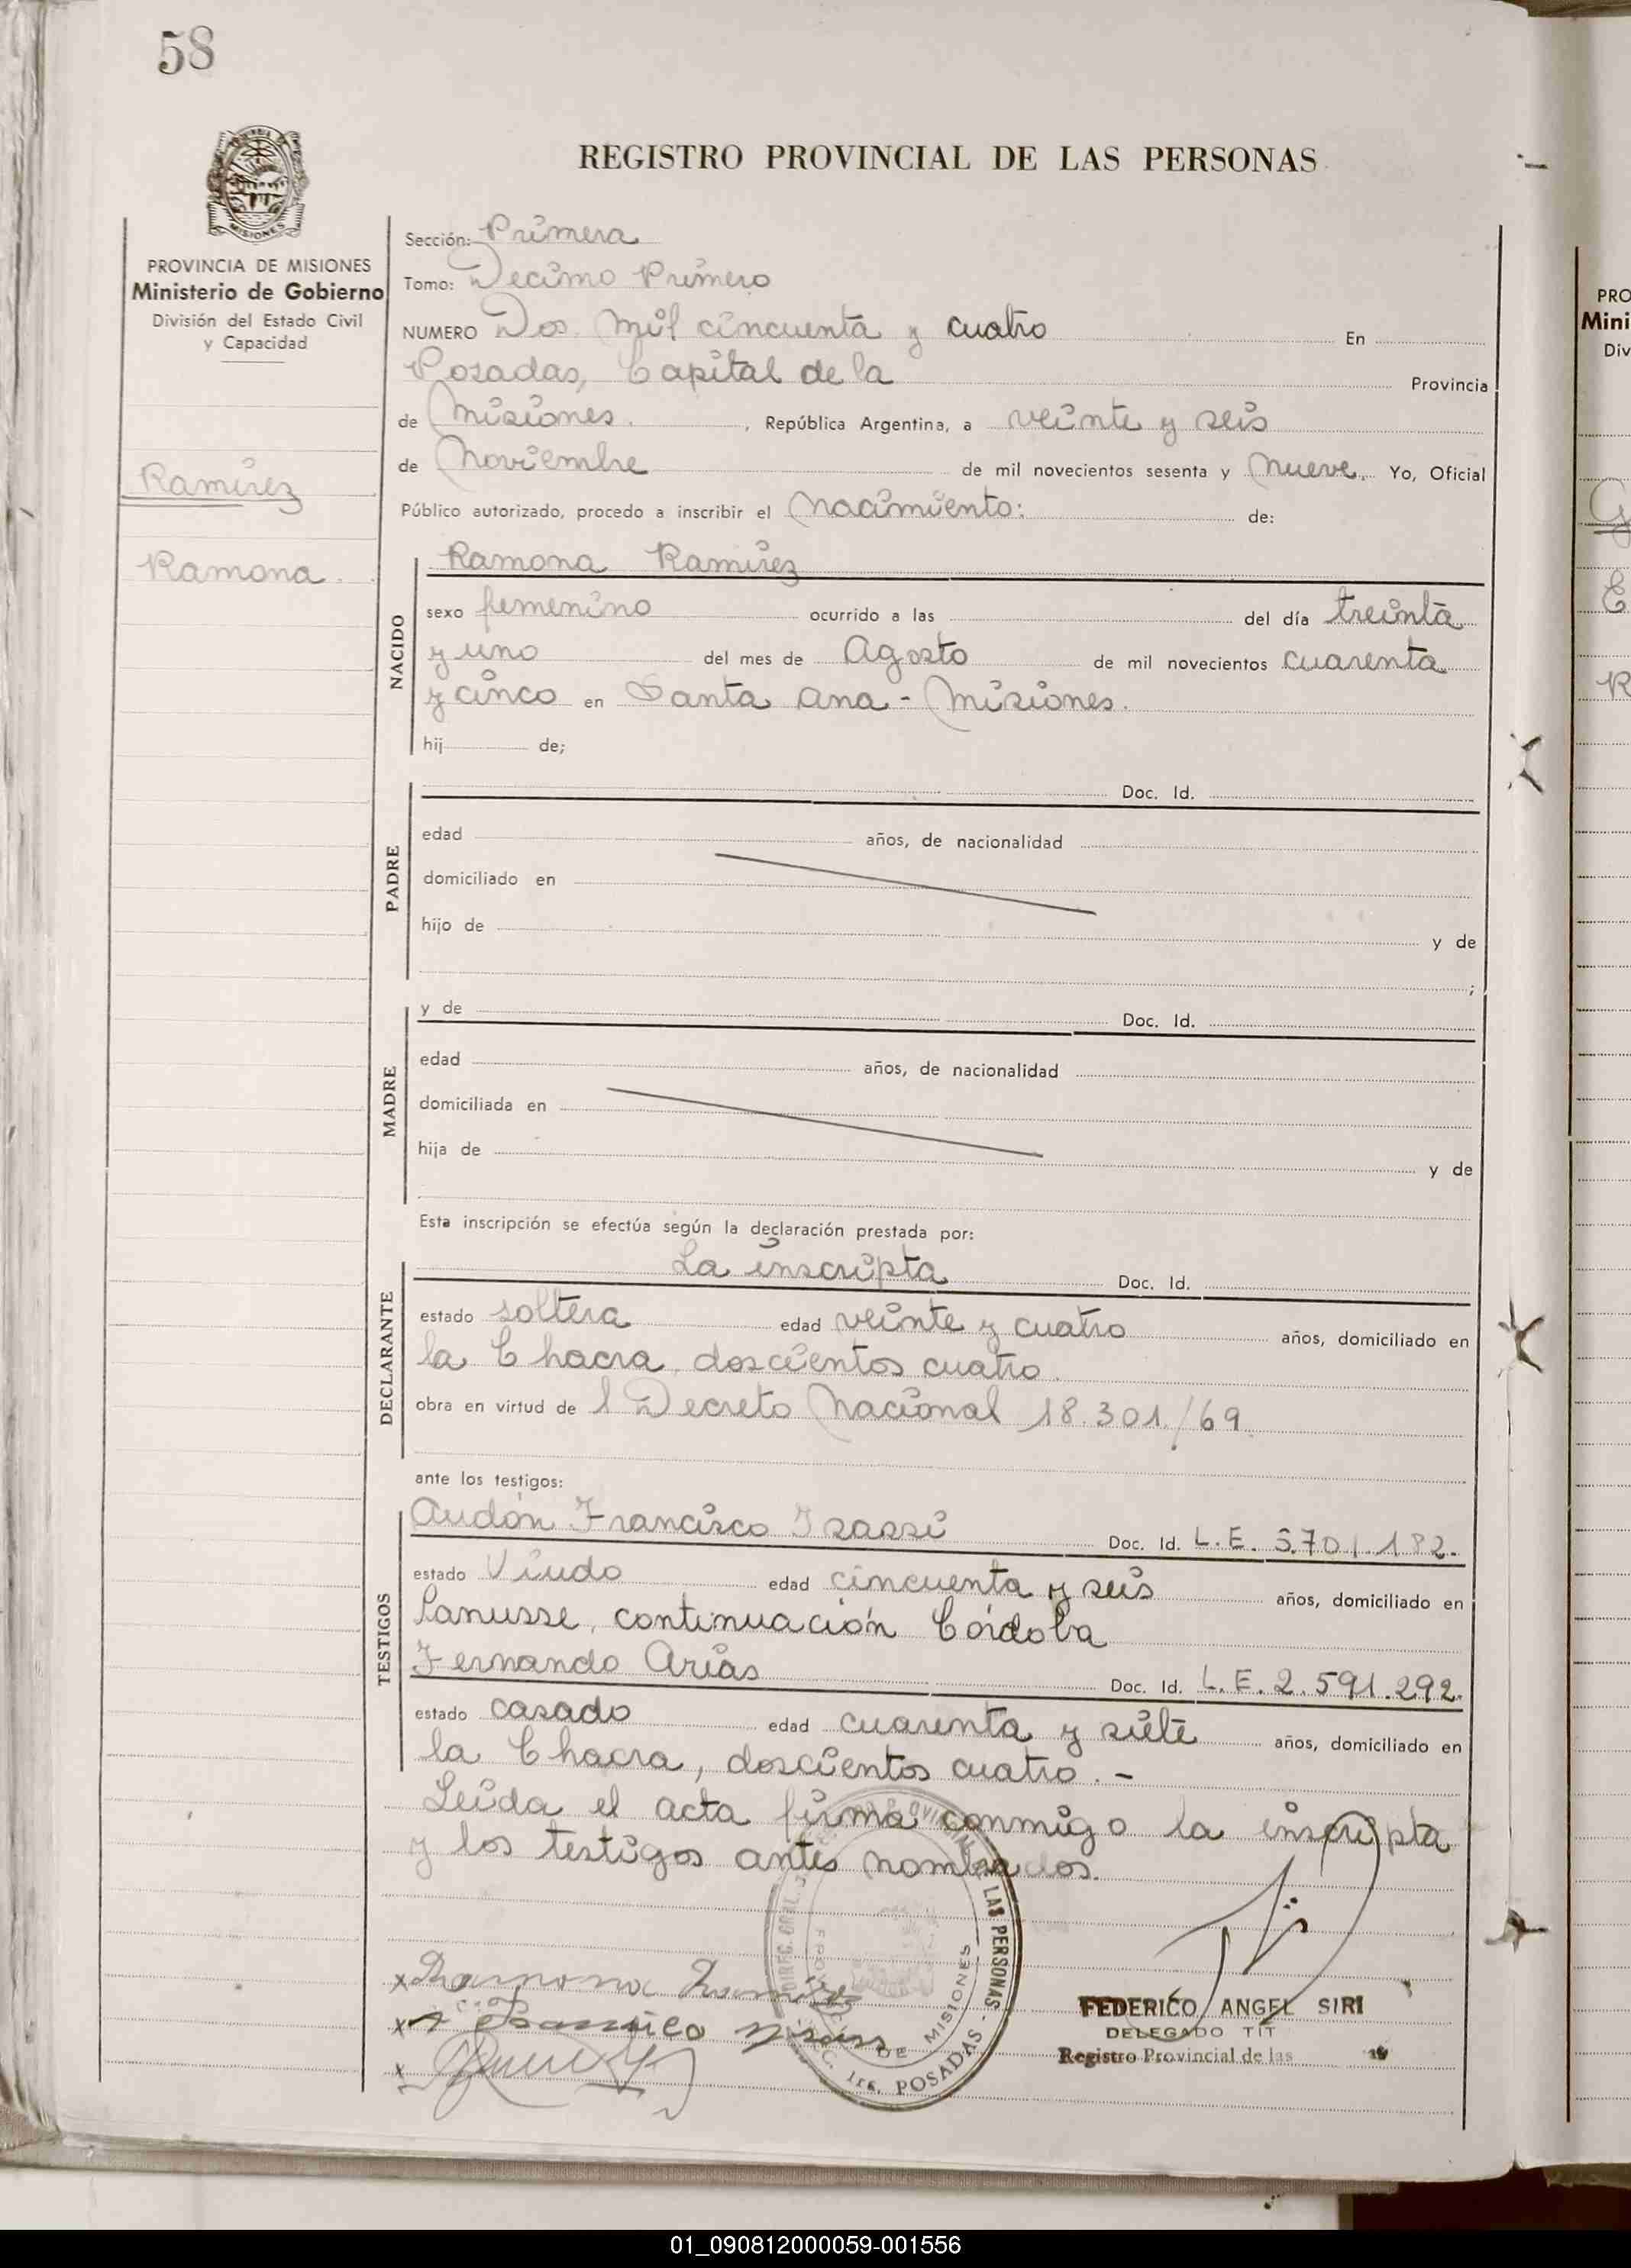 58
REGISTRO PROVINCIAL DE LAS PERSONAS
MISIONES
PROVINCIA DE MISIONES
Ministerio de Gobierno
División del Estado Civil
y Capacidad
Ramírez
Ramona
Sección: Primera
Tomo: Decimo Primero
NUMERO Dos mil cincuenta y cuatro En
Posadas, Capital de la Provincia
de Misiones. , República Argentina, a veinte y seis
de Noviembre de mil novecientos sesenta y nueve, Yo, Oficial
Público autorizado, procedo a inscribir el nacimiento: de:
NACIDO
Ramona Ramirez
sexo femenino ocurrido a las del día treinta
y uno del mes de Agosto de mil novecientos cuarenta
y cinco en Santa Ana - Misiones.
hij de;
PADRE
Doc. Id.
edad años, de nacionalidad
domiciliado en
hijo de y de
;
MADRE
y de Doc. Id.
edad años, de nacionalidad
domiciliada en
hija de y de
Esta inscripción se efectúa según la declaración prestada por:
DECLARANTE
La inscripta Doc. Id.
estado soltera edad veinte y cuatro años, domiciliado en
la Chacra doscientos cuatro.
obra en virtud de l Decreto Nacional 18.301/69.
ante los testigos:
TESTIGOS
Audón Francisco Isassi Doc. Id. L.E. 5.701.182.
estado Viudo edad cincuenta y seis años, domiciliado en
Lanusse, continuación Córdoba
Fernando Arias Doc. Id. L.E. 2.591.292.
estado casado edad cuarenta y siete años, domiciliado en
la Chacra, doscientos cuatro.-
Leida el acta firma conmigo la inscripta
y los testigos antes nombrados.
Ramona Ramirez
DIREC. GRAL. PROVINCIAL DE LAS PERSONAS - POSADAS -
DE MISIONES
FEDERICO ANGEL SIRI
DELEGADO TIT
Registro Provincial de las
PRO
Mini
Div
01_090812000059-001556